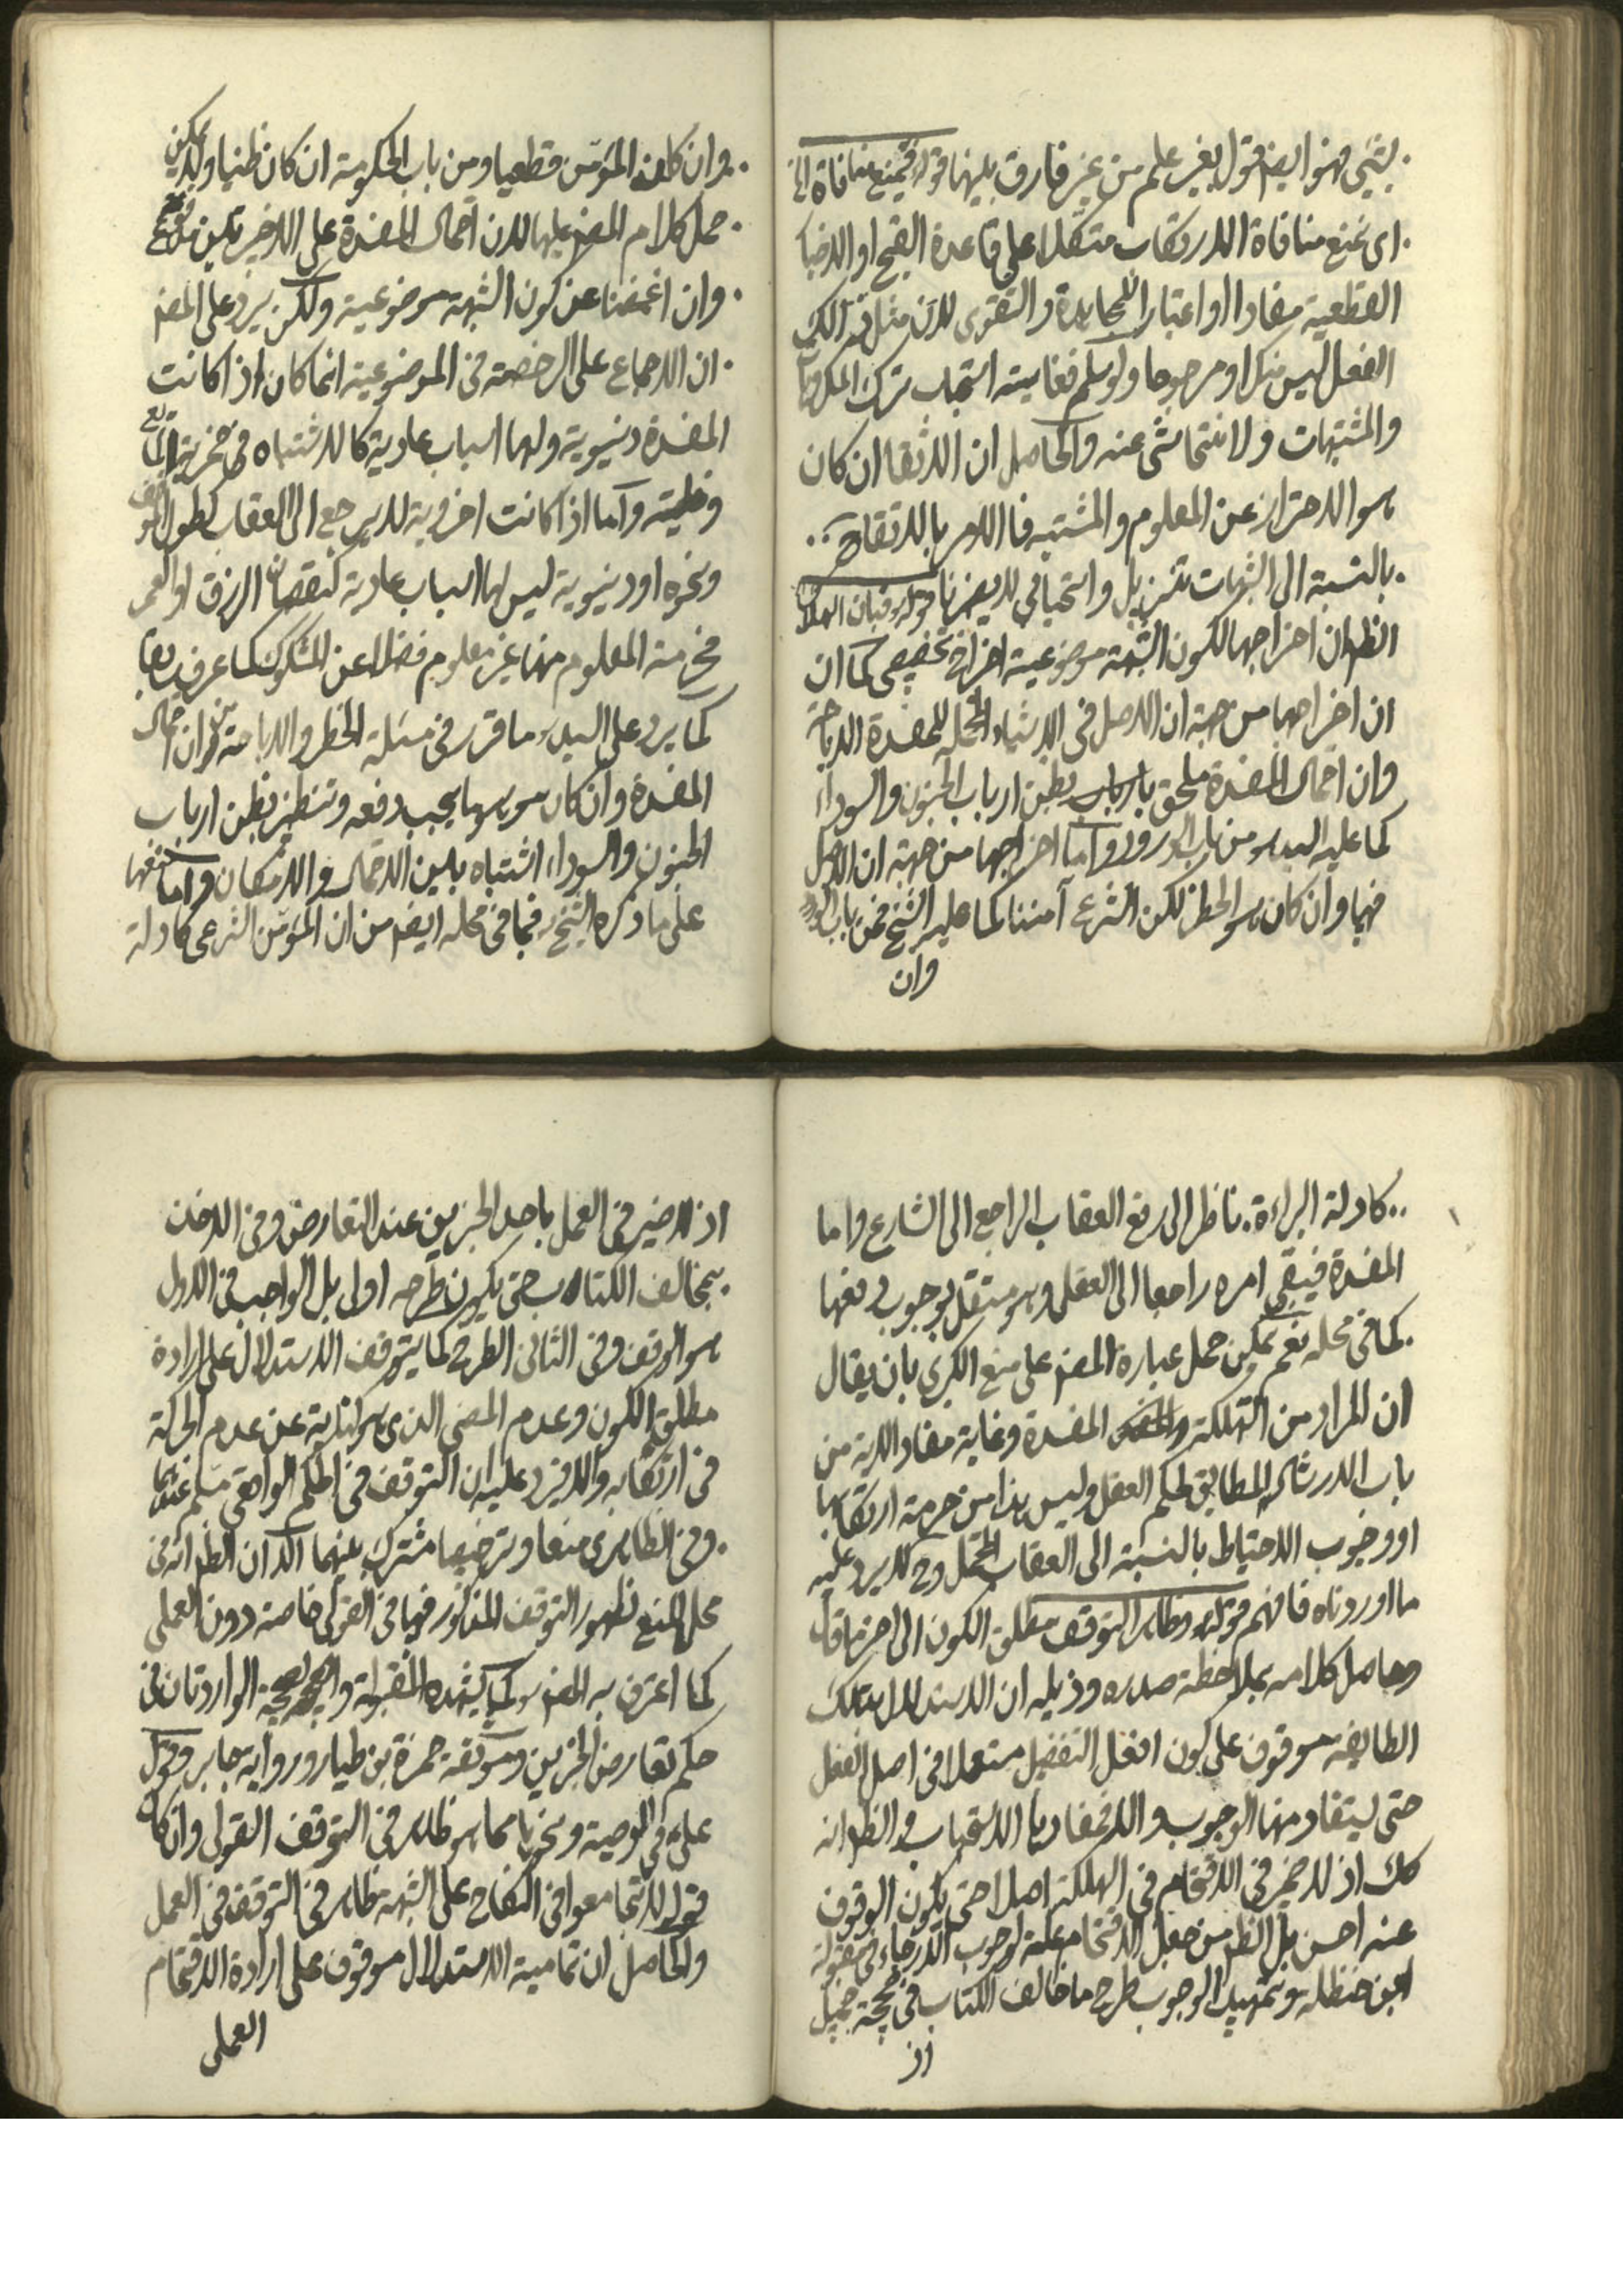 بشيء فهو ايضا قول بغير علم من غير فارق بينهما قوله فنمنع منافاة الخ
اى نمنع منافاة الارتكاب متكلا على قاعدة القبح او الاخبار
القطعية مفادا او اعتبارا للمجاهدة والتقوى لان مثل ذلك
الفعل ليس منكرا ومرجوحا ولو سلم فغايته استحباب ترك المكروهات
والمشتبهات ولا نتحاشى عنه والحاصل ان الاتقاء ان كان
هو الاحتراز عن المعلوم والمشتبه فالامر بالاتقاء ح
بالنسبة الى الشبهات تنزيل واستحبابى لا يضرنا قوله فبان الهلاك
الظ ان اخراجها لكون الشبهة موضوعية اخراج تخصيصى كما ان
ان اخراجها من جهة ان الاصل فى الاشياء المحتملة للمفسدة الاباحة
وان احتمال المفسدة ملحق بارباب بظن ارباب الجنون والسوداء
كما عليه السيد من باب الورود واما اخراجها من جهة ان الاصل
فيها وان كان هو الحظر لكن الشرع آمننا كما عليه الشيخ فمن باب الورود
وان
وان كان المؤمن قطعيا ومن باب الحكومة ان كان ظنيا ولا يمكن
حمل كلام المص عليها لان احتمال المفسدة على الاخيرين
وان اغمضنا عن كون الشبهة موضوعية ولكن يرد على المص
ان الاجماع على الرخصة فى الموضوعية انما كان اذا كانت
المفسدة دنيوية ولها اسباب عادية كالاشتباه فى خمرية المائع
وخليته واما اذا كانت اخروية لا يرجع الى العقاب كطول الموقف
ونحوه او دنيوية ليس لها اسباب عادية كنقصان الرزق او العمر
فحرمة المعلوم منها غير معلوم فضلا عن المشكوك كما عرف سابقا
كما يرد على السيد ما قرر فى مسئلة الحظر والاباحة من ان احتمال
المفسدة وان كان موهوما يجب دفعه وتنظير بظن ارباب
الجنون والسوداء اشتباه بين الاحتمال والامكان واما منعها
على ما ذكره الشيخ فما فى محله ايضا من ان المؤمن الشرعى كادلة
كادلة البراءة ناظر الى رفع العقاب الراجع الى الشارع واما
المفسدة فيبقى امره راجعا الى العقل وهو مستقل بوجوب دفعها
كما فى محله نعم يمكن حمل عبارة المص على منع الكبرى بان يقال
ان المراد من التهلكة المفسدة وغاية مفاد الاية من
باب الارشاد المطابق لحكم العقل وليس هذا من حرمة ارتكابها
او وجوب الاحتياط بالنسبة الى العقاب المحتمل وح لا يرد عليه
ما اوردناه فافهم قوله وظاهر التوقف مطلق الكون الى اخر ما قال
وحاصل كلامه بملاحظة صدره وذيله ان الاستدلال بتلك
الطايفة موقوف على كون افعل التفضيل مستعملا فى اصل الفعل
حتى يستفاد منها الوجوب والا فمفادها الاستحباب والظ انه
كك اذ لا خير فى الاقتحام فى الهلكة اصلا حتى يكون الوقوف
عنه احسن بل الظ من جعل الاقتحام علة لوجوب الارجاء فى مقبولة
ابن حنظله وتمهيد الوجوب طرح ما خالف الكتاب فى صحيحة جميل
اذ
اذ لا خير فى العمل باحد الخبرين عند التعارض وفى الاخذ
بمخالف الكتاب حتى يكون طرحه اولى بل الواجب فى الاول
هو الوقف وفى الثانى الطرح كما يتوقف الاستدلال على ارادة
مطلق الكون وعدم المضى الذى هو كناية عن عدم الحركة
فى ارتكابه والا فيرد عليه ان التوقف فى الحكم الواقعى مسلم عندهما
وفى الظاهرى منعا وترخيصا مشترك بينهما الا ان الظ انه فى
محل المنع لظهور التوقف المذكور فيها فى القولى خاصة دون العملى
كما اعترف به المص وكما يشهده المقبولة والصحيحة الواردتان فى
حكم تعارض الخبرين وموثقة حمزة بن طيار ورواية جابر وقول
على فى الوصية ونحوها مما هو ظاهر فى التوقف القولى وان كان
قوله لا تجامعوا فى النكاح على الشبهة ظاهر فى التوقف فى العمل
والحاصل ان تمامية الاستدلال موقوف على ارادة الاقتحام
العملى